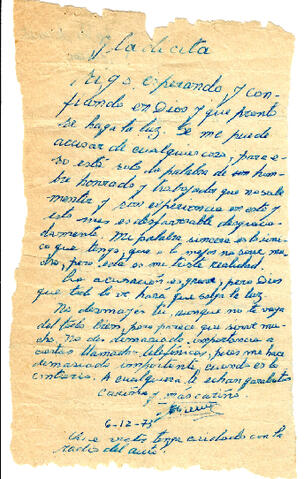 Gladicita
Sigo esperando, y con-
fiando en Dios y que pronto
se haga la luz. Se me puede
acusar de cualquier cosa, para e-
so está solo la palabra de un hom-
bre honrado y trabajador que no sabe
mentir y sin experiencia en esto y
esto mes es desfavorable desgracia-
damente. Mi palabra sincera es lo uni-
co que tengo, que a lo mejor no sirve mu-
cho, pero esta es mi triste realidad.
La acusación es grave, pero Dios
que todo lo ve hará que salga la luz.
No desmayes tú, aunque no te vaya
del todo bien, pero parece que será mu-
cho. No des demasiado importancia a
ciertas llamadas telefónicas, pues me hace
demasiado importante, cuando es lo
contrario. A cualquiera le echan garabatos
Cariños y más cariños
6-12-73
con la
radio del auto.